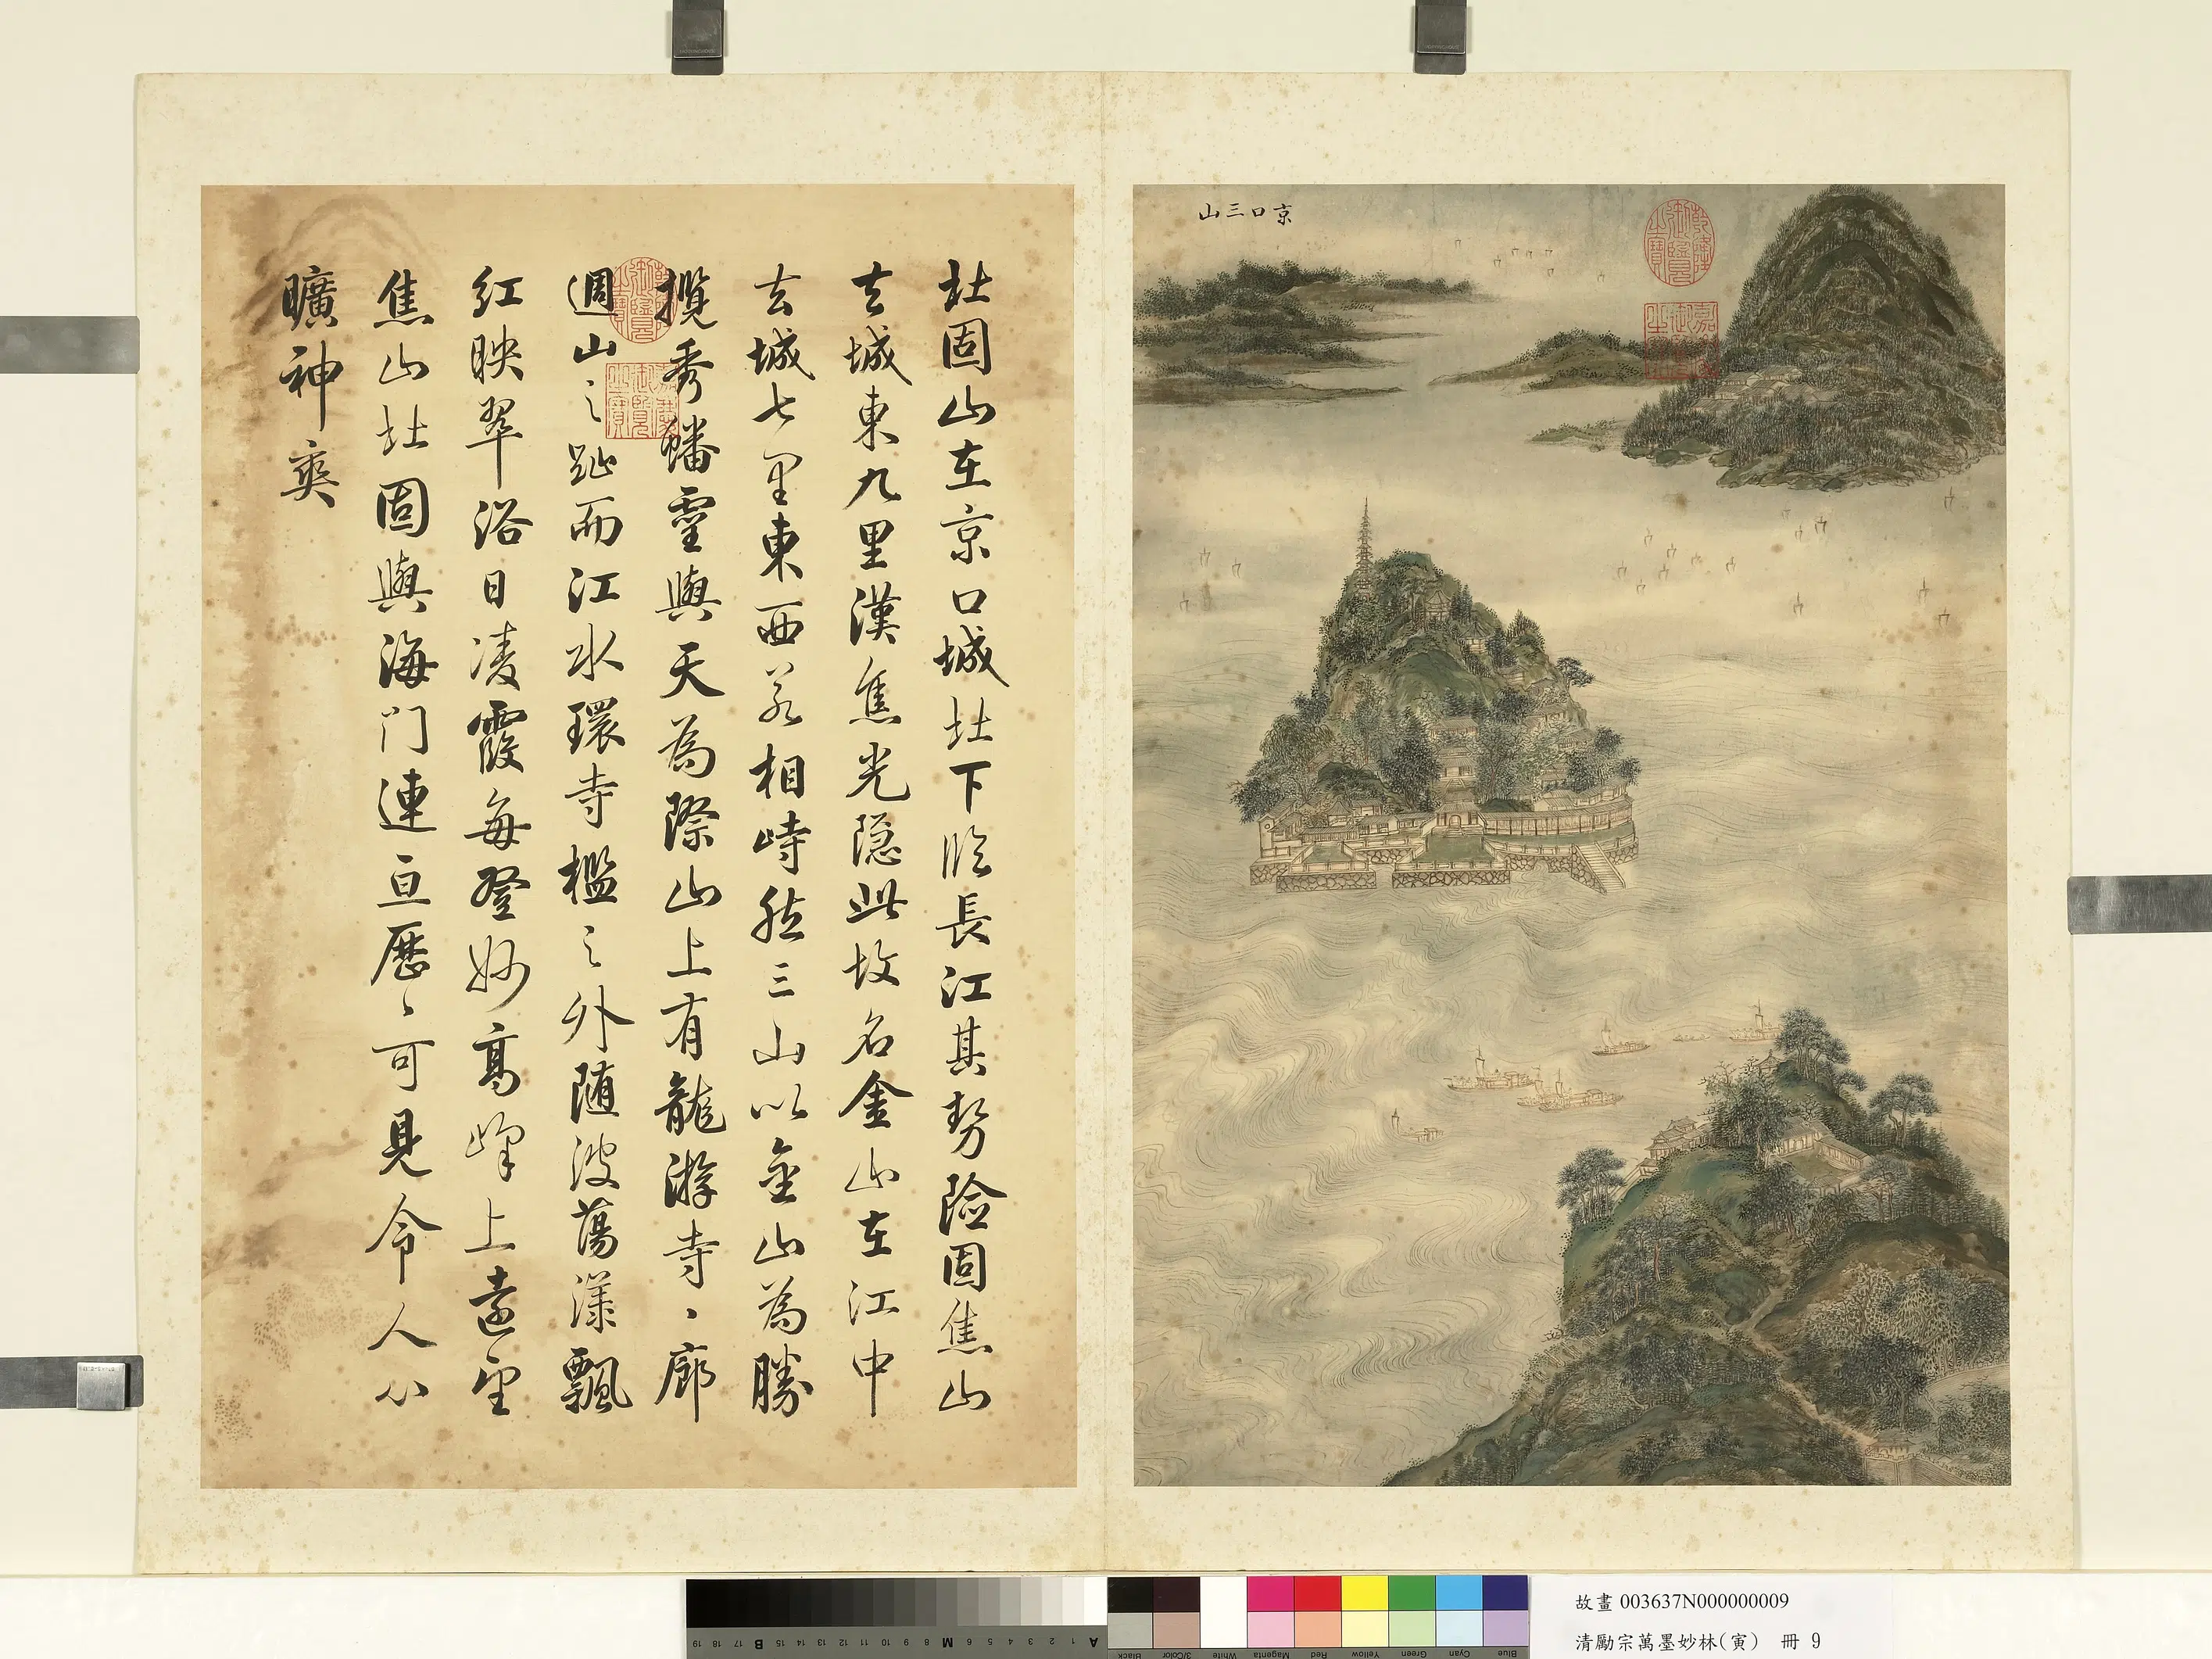 京口三山
乾隆御覽之寶
嘉慶御覽之寶
北固山在京口城北下臨長江其勢險固焦山
去城東九里漢焦光隱此故名金山在江中
去城七里東西若相峙然三山以金山為勝
攬秀蟠靈與天為際山上有龍游寺〻廊
週山之趾而江水環寺檻之外隨波蕩漾飄
紅映翠浴日凌霞每登妙高峰上遠望
焦山北固與海門連亘歷〻可見令人心
曠神爽
乾隆御覽之寶
嘉慶御覽之寶
A 1 2 3 4 5 6 7 8 M 9 10 11 12 13 14 15 B 17 18 19
Blue Cyan Green Yellow Red Magenta White 3/Color Black
故畫 003637N000000009
清勵宗萬墨妙林(寅) 冊 9